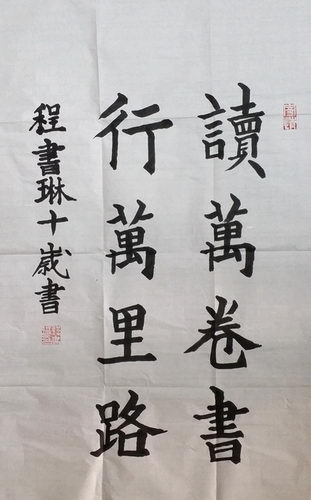 讀萬卷書
行萬里路
程書琳十歲書